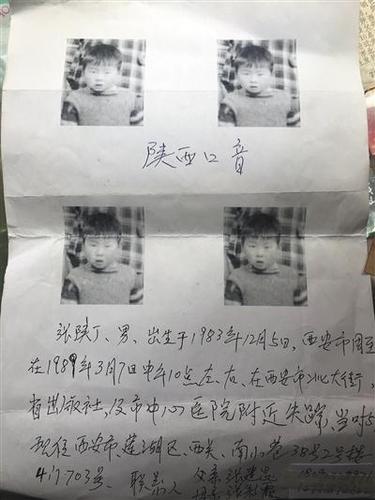 陕西口音
张陕丁、男、出生于1983年12月5日、西安市周至
在1989年3月7日中午10点左、右、在西安市北大街,
省出版社,及市中心医院附近失踪、当时5
现住西安市莲湖区、西关、南小巷38号2号楼
4门703号 联系人 父亲